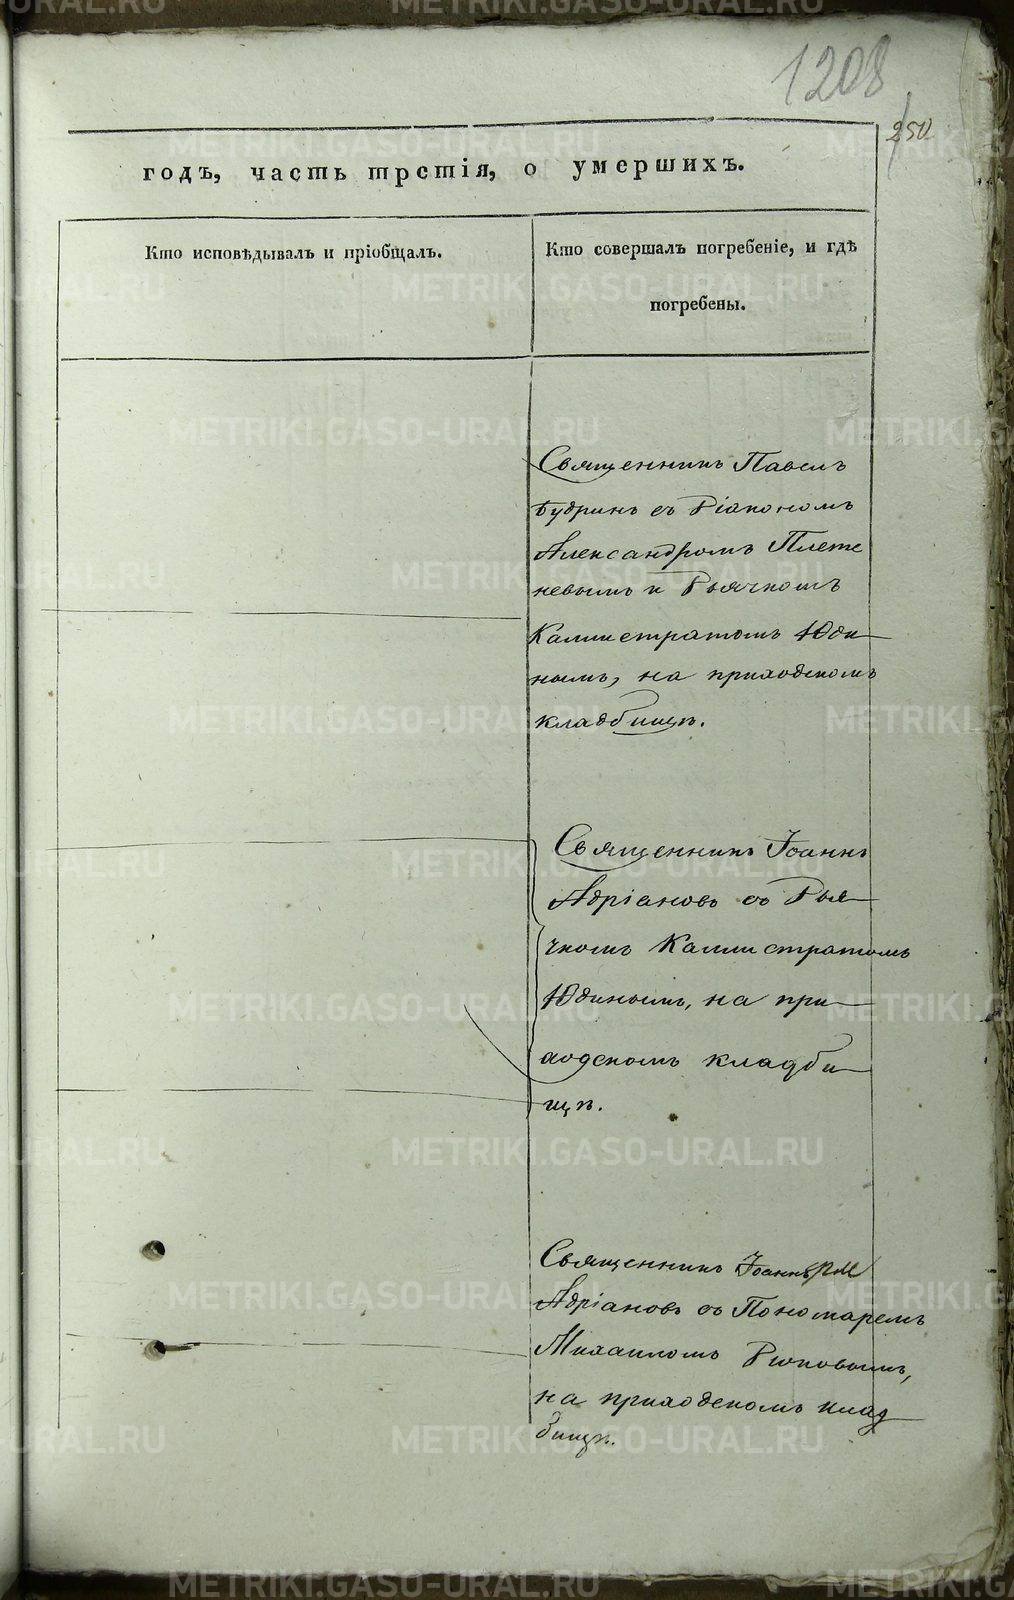 1208
250
годъ, часть третія, о умершихъ.
Кто исповѣдывалъ и пріобщалъ.
Кто совершалъ погребеніе, и гдѣ
погребены.
Священникъ Павелъ
Будринъ съ Діакономъ
Александромъ Плет
невымъ и Дьячкомъ
Каллистратомъ Юди
нымъ, на приходскомъ
кладбищѣ.
Священникъ Іоаннъ
Адріановъ съ Дья
чкомъ Каллистратомъ
Юдинымъ, на при
ходскомъ кладби
щѣ.
Священникъ Іоаннъ
Адріановъ съ Пономаремъ
Михаиломъ
на приходскомъ клад
бищѣ.
METRIKI.GASO-URAL.RU